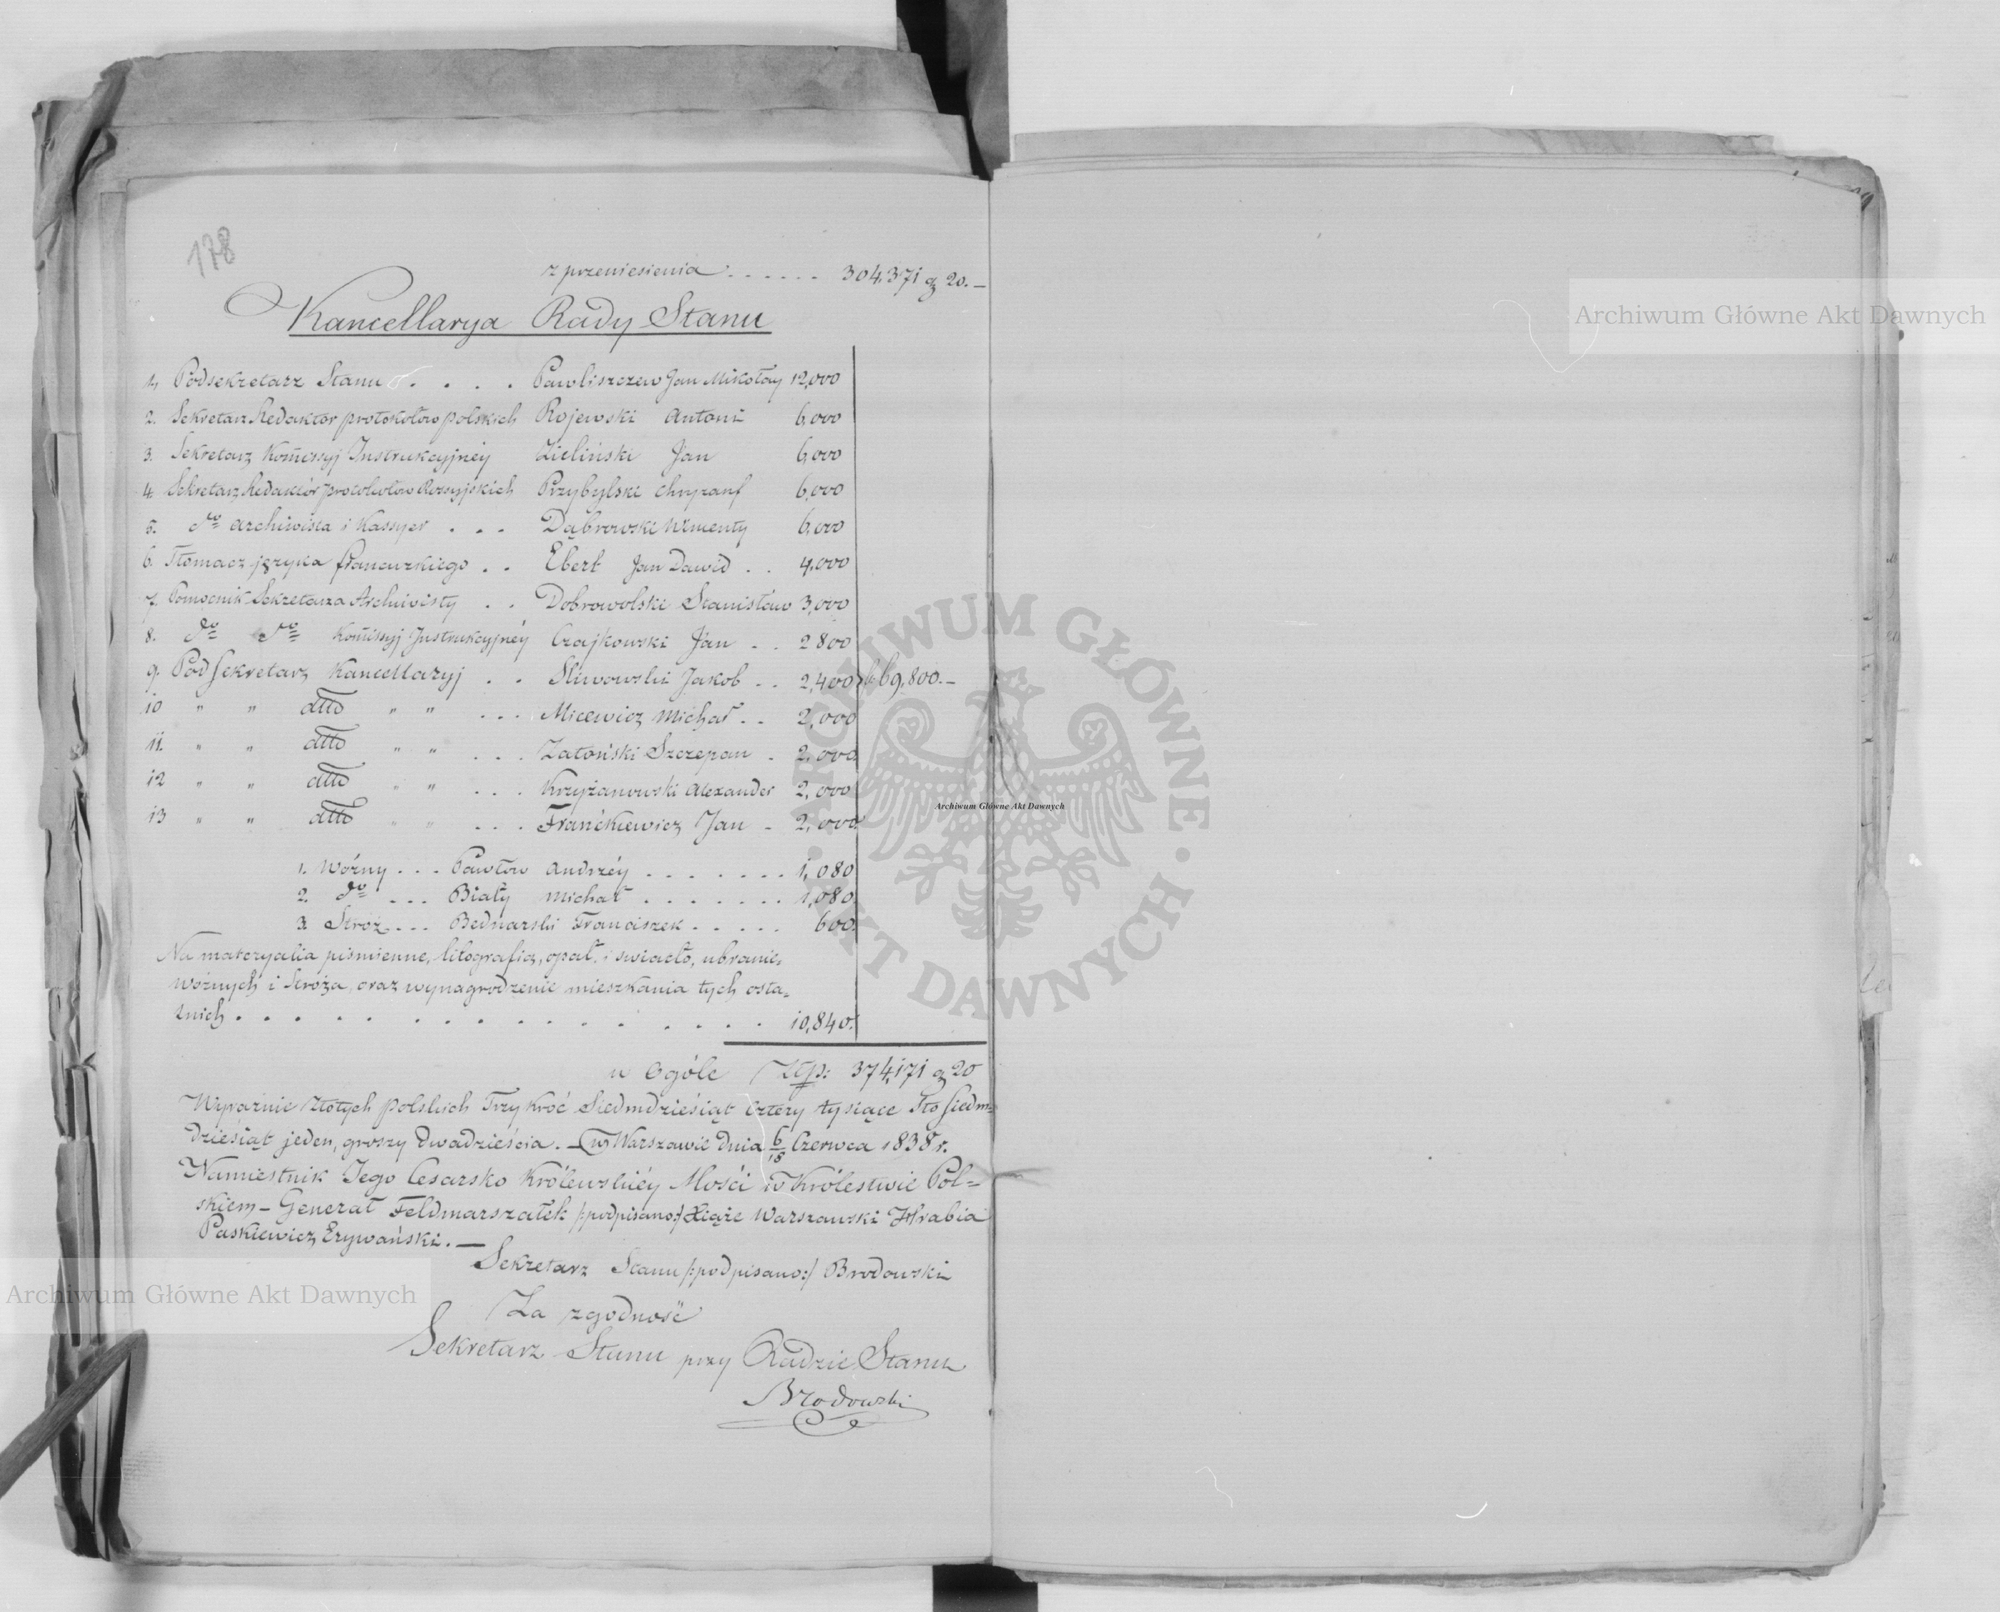 178
z przeniesienia . . . . . . 304,371 g 20. —
Kancellarya Rady Stanu
1, Podsekretarz Stanu . . . . Pawliszczew Jan Mikołay 12,000
2. Sekretarz Redaktor protokołow polskich Rojewski Antoni 6,000
3. Sekretarz Komissyj Instrukcyjnéy Zieliński Jan 6,000
4. Sekretarz Redaktór protokołow Rossyjskich Przybylski Chryzanf 6,000
5. do Archiwista i Kassyer . . . Dąbrowski 6,000
6. Tłomacz języka francuzkiego . . Ebert Jan Dawid . . 4,000
7. Pomocnik Sekretarza Archiwisty . . Dobrowolski Stanisław 3,000
8. do do Komissyj Instrukcyjnéy Czajkowski Jan . . 2 800
9. PodSekretarz Kancellaryj . . Sliwowski Jakob . . 2,400 69,800. —
10 " " dtto " " . . . Micewicz Michał . . 2,000
11. " " dtto " " . . . Zatoński Szczepan . 2,000
12 " " dtto " " . . . Krzyżanowski Alexander 2,000
13 " " dtto " " . . . Franćkiewicz Jan . 2,000
1. Wóżny . . . Pawłow Andrzéy . . . . . . . 1,080
2. do . . . Biały Michał . . . . . . . 1,080
3. Stróż . . . Bednarski Franciszek . . . . . 600
Na materyalia piśmienne, litografią, opał i swiatło, ubranie
wóżnych i Stróża, oraz wynagrodzenie mieszkania tych osta=
tnich . . . . . . . . . . . . . . . 10,840.
w Ogóle Złp: 374,171 g 20
Wyraźnie Złotych polskich Trzykroć Siedmdziesiąt cztery tysiące Sto siedm=
dziesiąt jeden, groszy dwadzieścia. — w Warszawie dnia 6/18 Czerwca 1838 r.
Namiestnik Jego Cesarsko Królewskiéy Mości w Królestwie Pol=
skiem — Generał Feldmarszałek /:podpisano:/ Xiąże Warszawski Hrabia
Paskiewicz Erywański. —
Sekretarz Stanu /:podpisano:/ Brodowski
Za zgodność
Sekretarz Stanu przy Radzie Stanu
Brodowski
Archiwum Główne Akt Dawnych
Archiwum Główne Akt Dawnych
Archiwum Główne Akt Dawnych
ARCHIWUM GŁÓWNE · AKT DAWNYCH ·